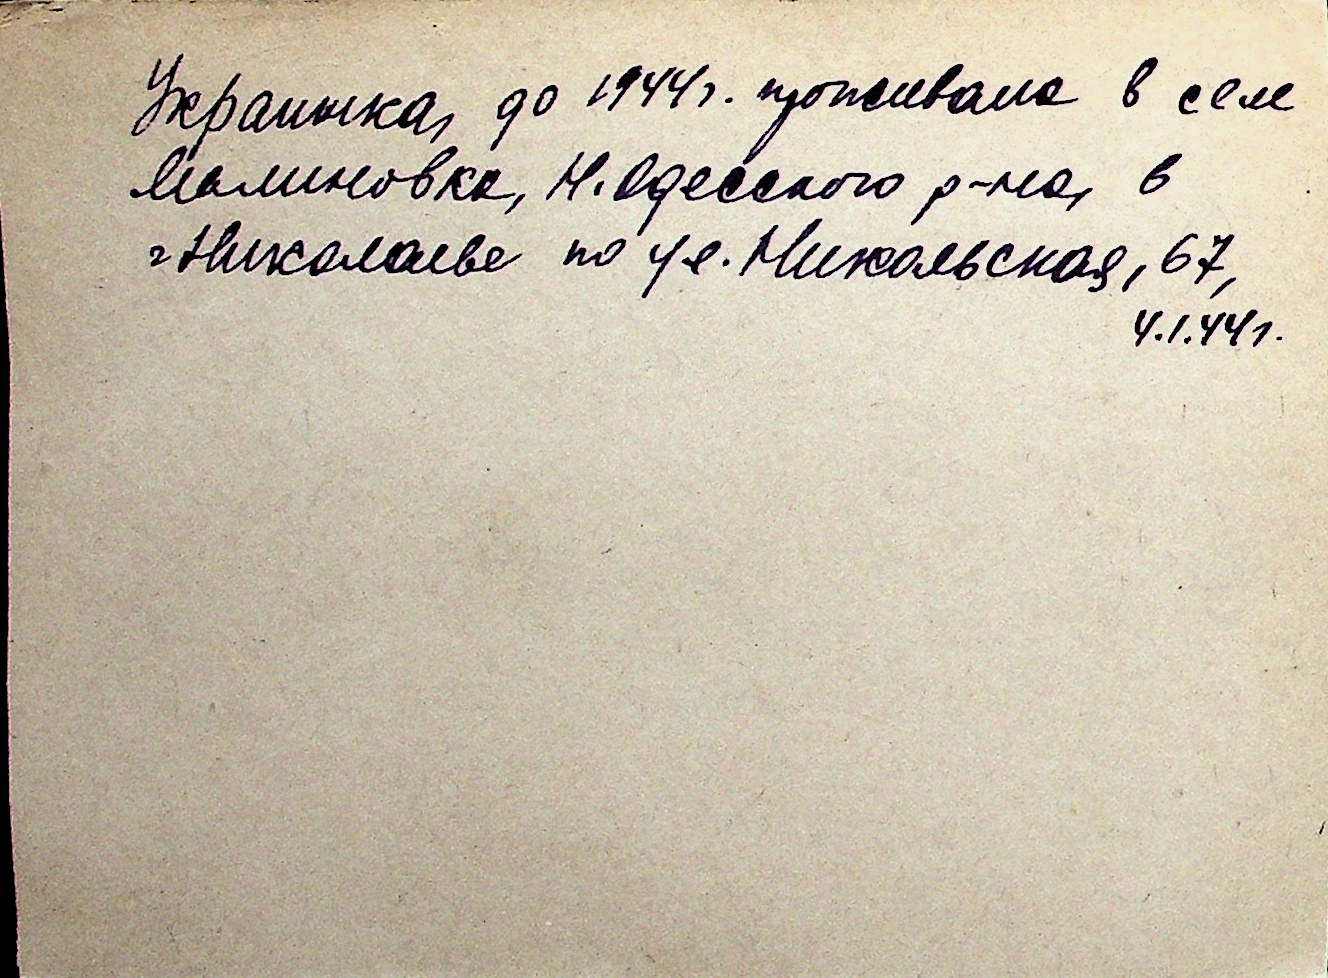 Украинка, до 1944г. проживала в селе
Малиновка, Н.Одесского р-на, в
г Николаеве по ул. Никольская, 67,
4.1.44г.